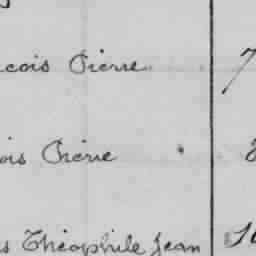 ncois Pierre 7
ois Pierre
s Théophile Jean